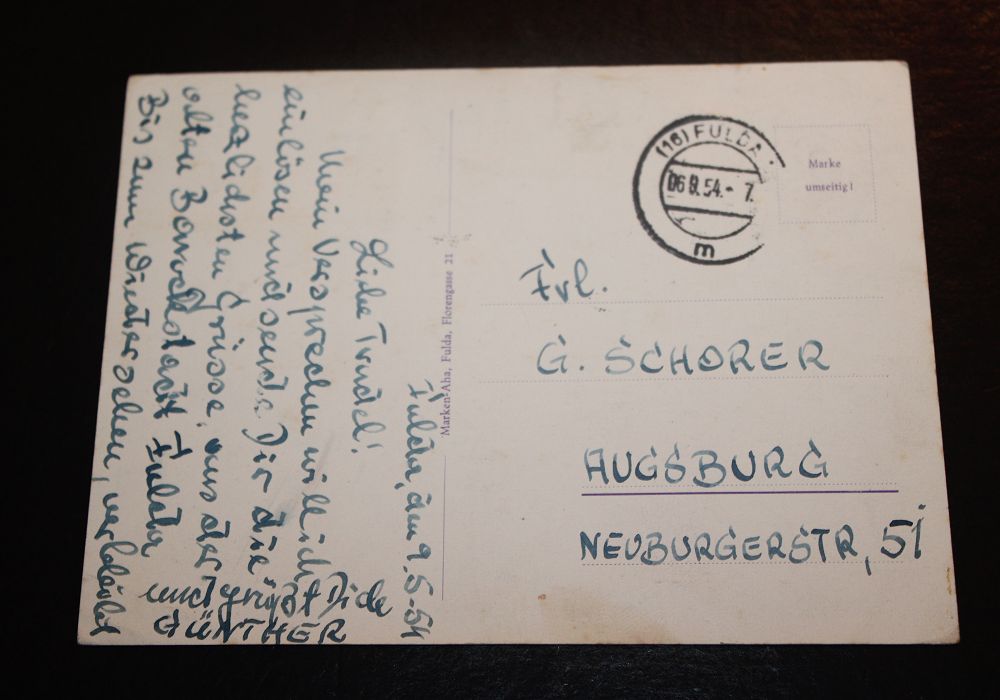 Fulda, den 9.5.54
Liebe Trudel!
Mein Versprechen will ich
einlösen und sende Dir die
herzlichsten Grüsse, aus der
alten Barockstadt Fulda
Bis zum Wiedersehen, verbleibt
und grüßt Dich
GÜNTHER
Marken-Aha, Fulda, Florengasse 21
(16) FULDA
06.9.54.- 7
m
Marke
umseitig!
Frl.
G. SCHORER
AUGSBURG
NEUBURGERSTR, 51